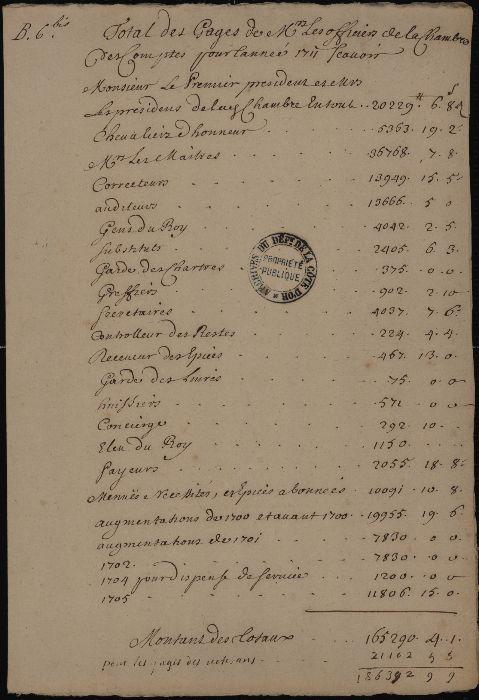 B. 6. bis
Total des Gages de Mrs Les officiers de la Chambre
des Comptes pour l'année 1711 scavoir
Monsieur Le Premier president et Mrs
Les presidens de lad Chambre En tout . 20229 ll 6 s 8 d
Chevaliers d'honneur . . . 5363. 19. 2.
Mrs Les Maitres . . . 36768. 7. 8.
Correcteurs . . . 13949. 15. 5.
auditeurs . . . 13666. 5. 0
Gens du Roy . . . 4042. 2. 5.
Substituts . . . 2405. 6. 3.
Garde des Chartres . . . 375. 0. 0.
Greffiers . . . 902. 2. 10
Secretaires . . . 4037. 7. 6.
Controlleur des Restes . . . 224. 4. 4.
Receveur des Epices . . . 467. 13. 0.
Garde des Livres . . . 75. 0. 0
huissiers . . . 571. 0. 0.
Concierge . . . 292. 10.
Eleu du Roy . . . 1150.
Payeurs . . . 2055. 18. 8.
Mennües Necessités, et Epices abonnées . 10091. 10. 8.
augmentations de 1700 et avant 1700 . 19955. 19. 6.
augmentations de 1701 . . . 7830. 0. 0
1702 . . . 7830. 0. 0.
1704 pour dispense de service . . . 1200. 0. 0
1705 . . . 11806. 15. 0.
Montans des totaux . . . 165290. 4. 1.
pour les gages des veterans . . . 21102 5 5
186392 9 9
ARCHIVES DU DÉPT. DE LA CÔTE D'OR
PROPRIÉTÉ
PUBLIQUE